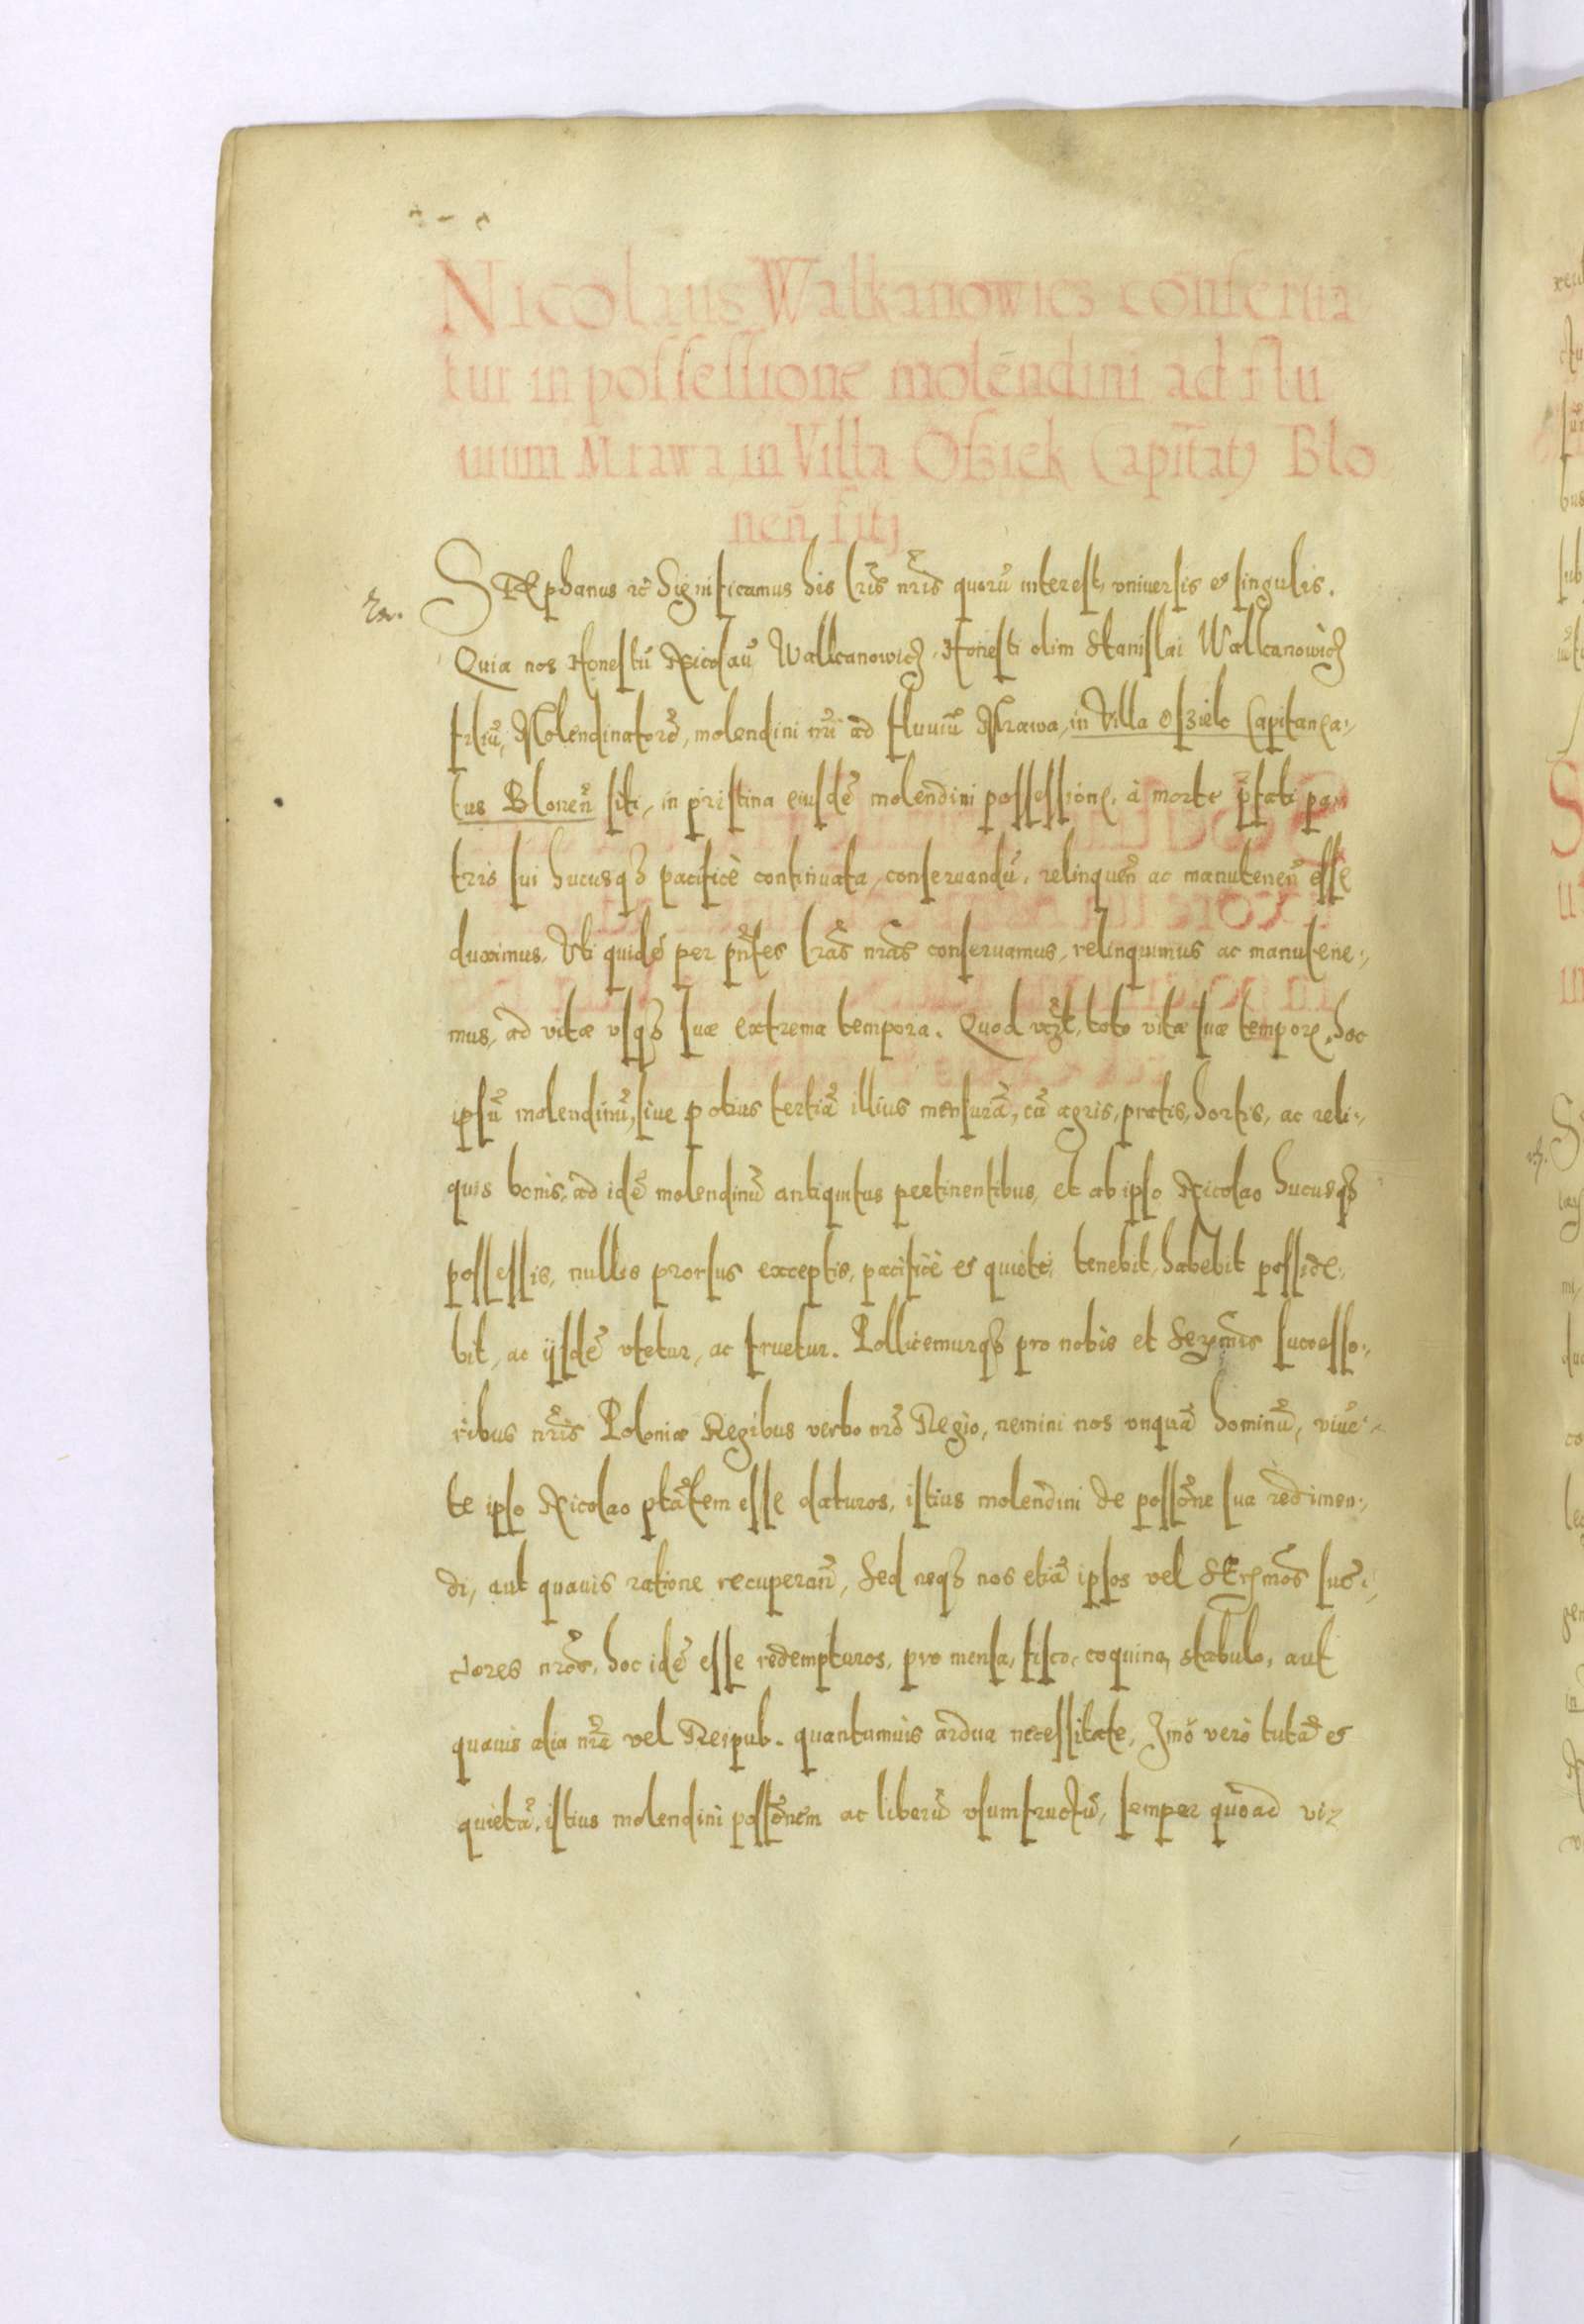 Nicolaus Walkanowicz conserua
tur in possessione molendini ad flu
uium Mrawa, in Villa Osziek Capitāty Blo
neñ sitj
STEphanus rc̃ Significamus his lr̃is nr̃is quorũ interest, vniuersis et singulis.
Quia nos Honestũ Nicolaũ Walkanowicz, Honesti olim Stanislai Walkanowicz
filiũ, Molendinatorẽ, molendini nr̃i ad fluuiũ Mrawa, in Villa Osziek Capitanea-
tus Bloneñ siti, in pristina eiusdẽ molendini possessione, à morte p̃fati pa-
tris sui hucusq3 pacificè continuata, conseruandũ, relinqueñ ac manuteneñ esse
duximus, Vti quidẽ per p̃ntes lr̃as nr̃as conseruamus, relinquimus ac manutene-
mus, ad vitæ vsq3 suæ extrema tempora. Quod vc̃zt, toto vitæ suæ tempore, hoc
ipsũ molendinũ, siue potius tertiã illius mensurã, cũ agris, pratis, hortis, ac reli-
quis bonis, ad idẽ molendinũ antiquitus pertinentibus, et ab ipso Nicolao hucusq3
possessis, nullis prorsus exceptis, pacificè et quietè, tenebit, habebit posside-
bit, ac ijsdẽ vtetur, ac fruetur. Pollicemurq3 pro nobis et Serm̃is successo-
ribus nr̃is Poloniæ Regibus verbo nr̃o Regio, nemini nos vnquã hominũ, viuẽ-
te ipso Nicolao p̃tãtem esse daturos, istius molendini de possõne sua redimen-
di, aut quauis ratione recuperañ, Sed neq3 nos etiã ipsos vel SErm̃os suc̃-
cores nr̃os, hoc idẽ esse redempturos, pro mensa, fisco, coquina, stabulo, aut
quauis alia nr̃a vel Reipub. quantumuis ardua necessitate, Imõ verò tutã et
quietã, istius molendini possõnem ac liberũ vsumfructũ, semper quoad vi-